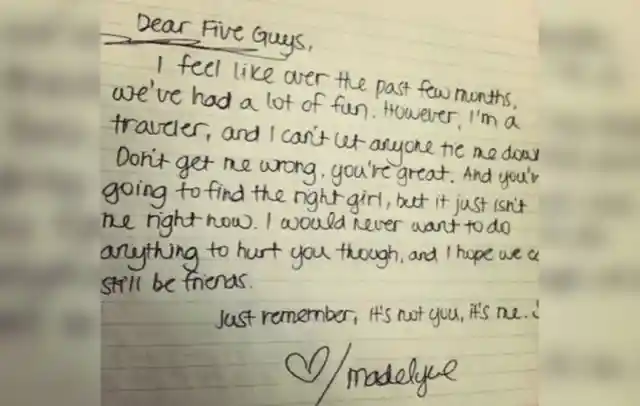 Dear Five Guys,
I feel like over the past few months,
we've had a lot of fun. However, I'm a
traveler, and I can't let anyone tie me down
Don't get me wrong, you're great. And you'r
going to find the right girl, but it just isn't
me right now. I would never want to do
anything to hurt you though, and I hope we c
still be friends.
Just remember, it's not you, it's me.
♡/madelyne